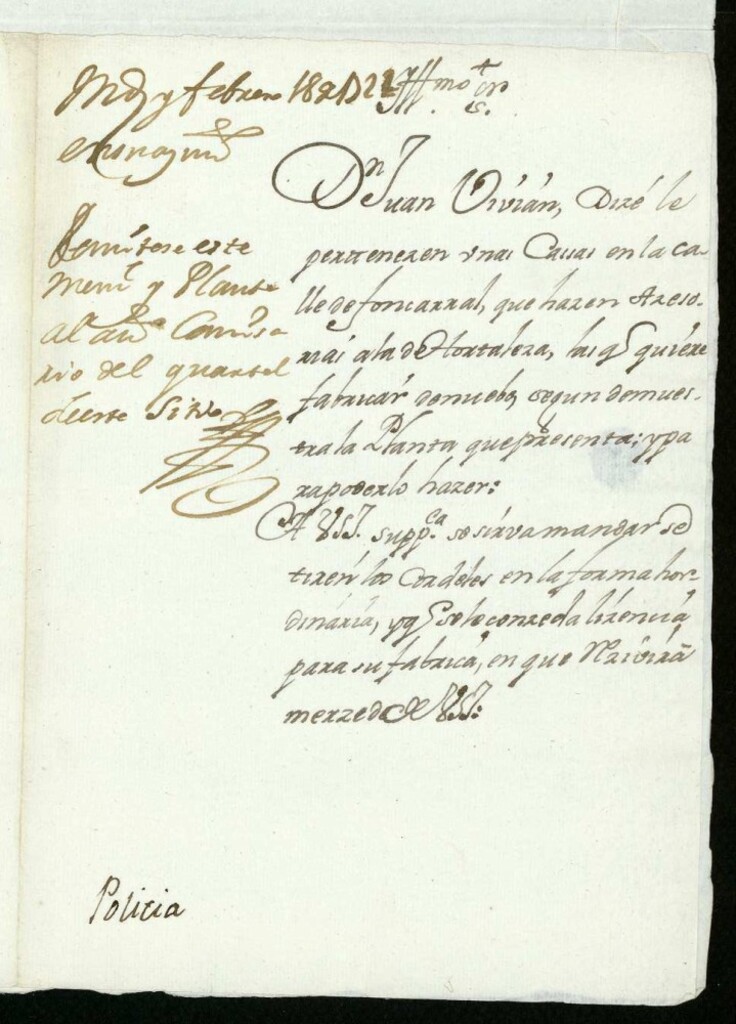 Md y febrero 18 de 1722
en su ayunt
Remitese este
Meml y Planta
al Comisa
rio del quartel
de este Sitio
Illmo Sor
Dn Juan Vivián, Dizé le
pertenezen vnas Casas en la ca-
lle de foncarral, que hazen Azeso-
rias ala de Hortaleza, las qs quiére
fabricár denuebo, segun demues-
tra la Planta que presenta; y pa
ra poderlo hazer:
A VSI. suppca se sirva mandar se
tiren los Cordeles en la forma hor-
dinária, y qe se le conzeda lizencia
para su fabrica, en que Rezivirá
merzed de VSI:
Policia